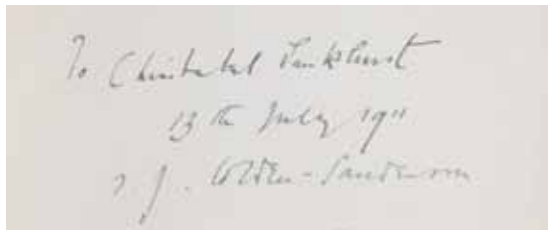 To Christabel Pankhurst
13th July 1911
T. J. Cobden-Sanderson